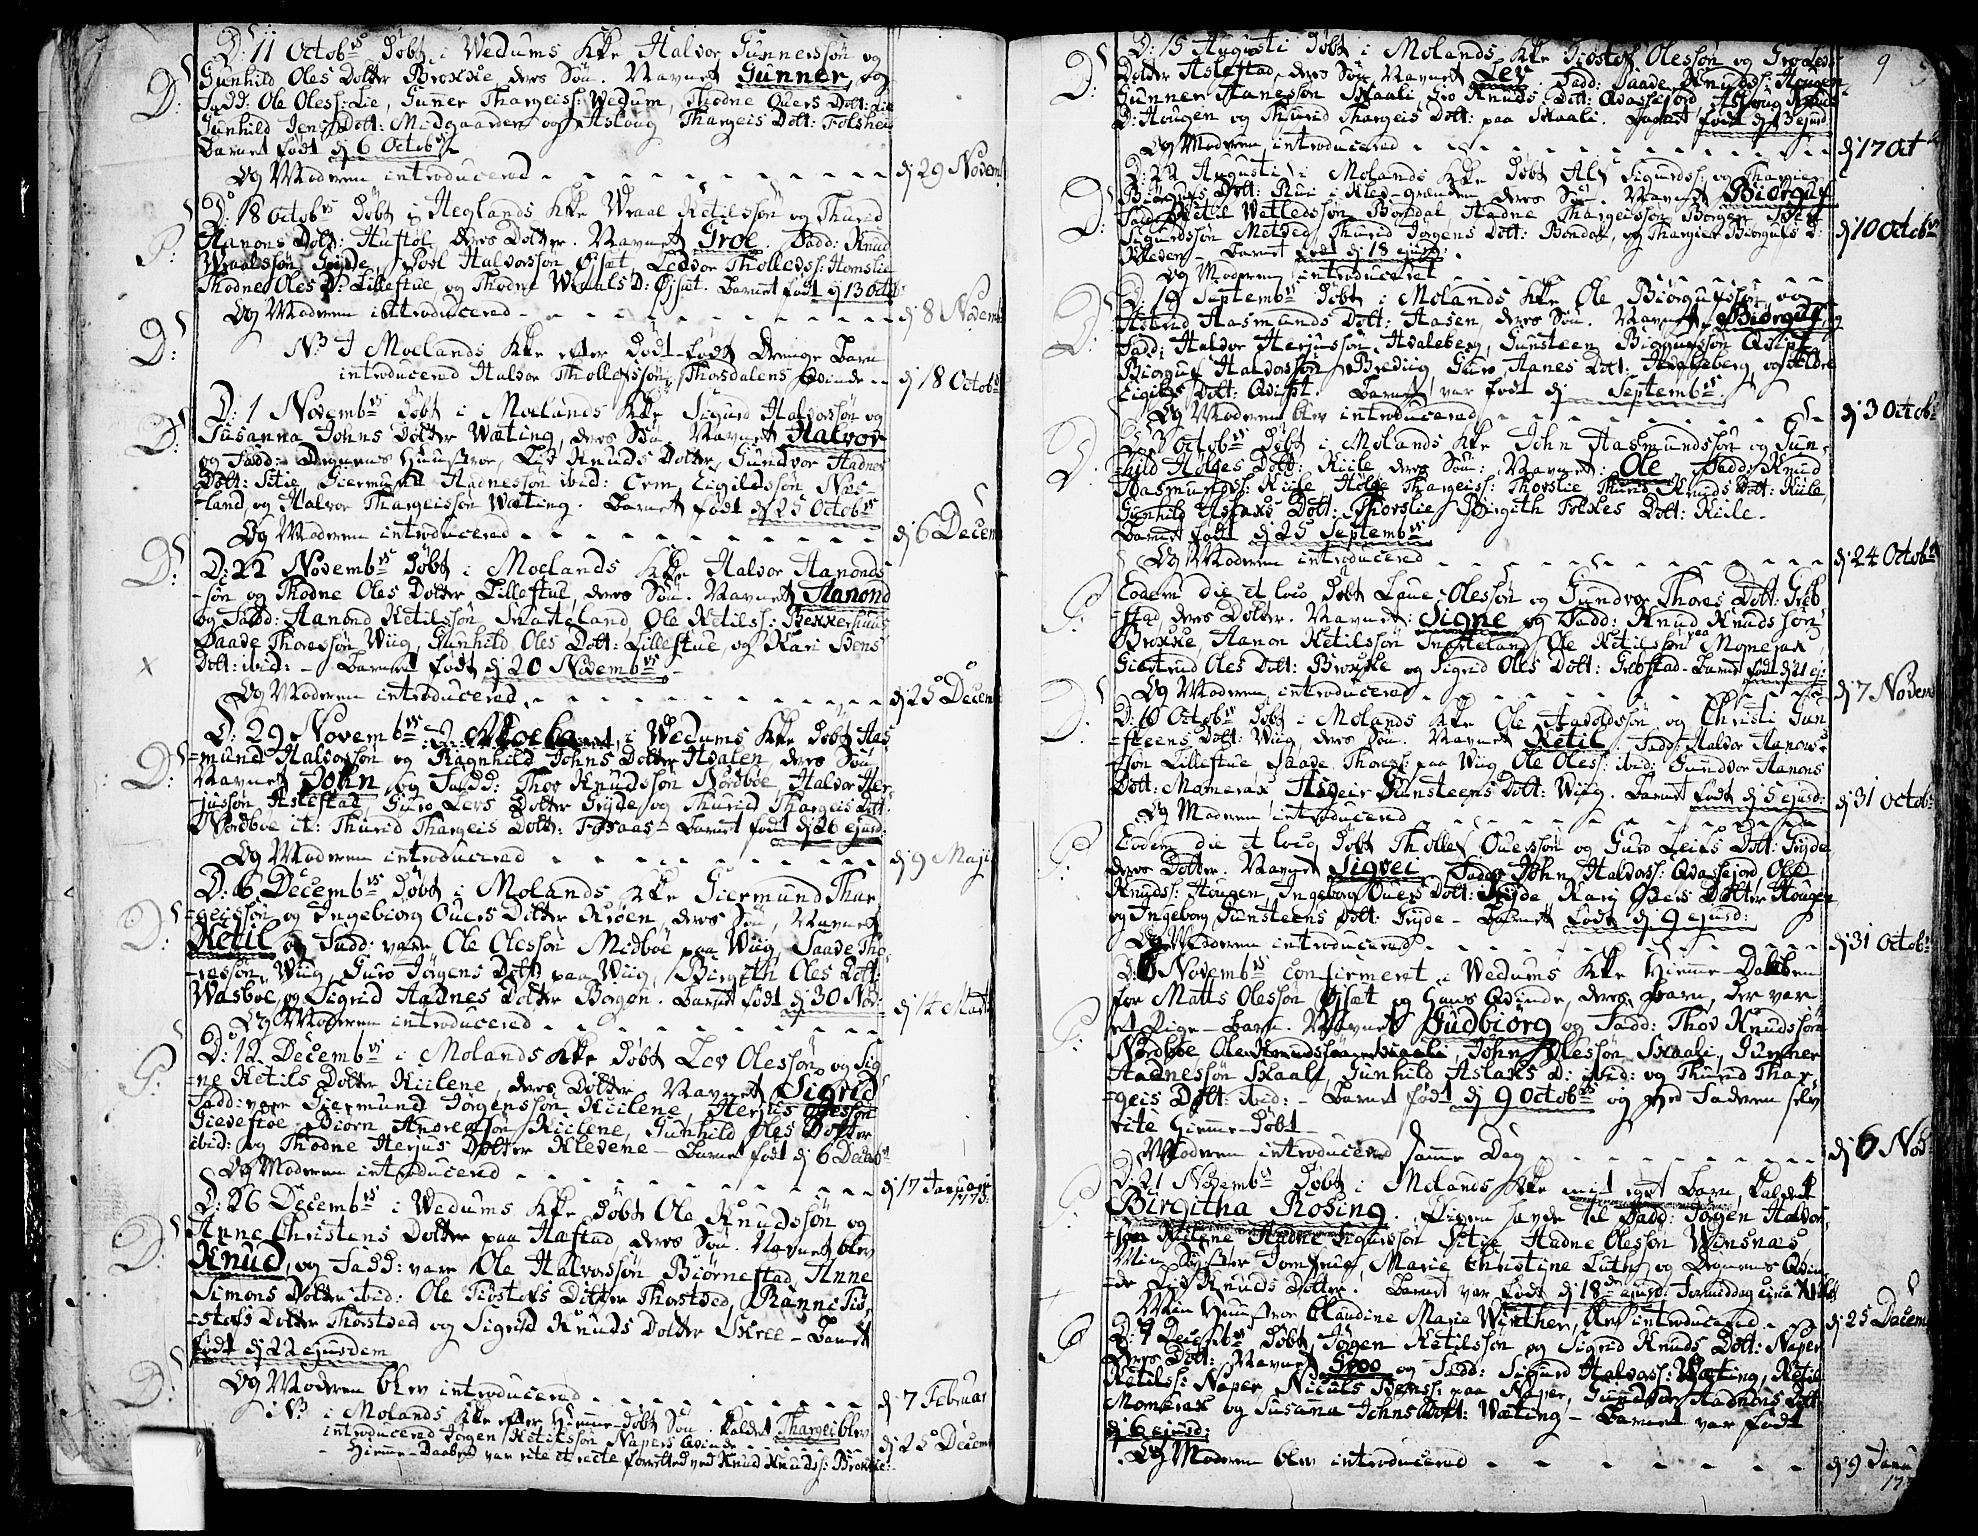 D: 11 Octobris Døbt i Wedums Kke Halvor Gunnerssøn og
Gunhild Oles Dotter Brokke, deres Søn. Navnet Gunner, og
Fadd: Ole Oless: Lie, Gunner Thargeiss: Wedum, Thodne Ouers Dott: Lie
Gunhild Jens Dott: Midgaarden og Asloug Thargeis Dott:
Barnet født dj 6 Octobr
Og Moderen introducered dj 29 Novem
D: 18 Octobris Døbt i Heglands Kke Wraal Ketilssøn og Thurid
Aanons Dott: deres Dotter. Navnet Groe. Fadd: Knud
Wraalssøn Gryde, Povl Halvorssøn Øjsæt Ledvor Tholleds: Homslie
Thodne Oles D: Lilleftue og Thodne Wraals D: Øjsæt. Barnet født dj 13 Octb
Og Moderen introducered dj 8 Novem
NB I Moelands Kke efter Død-født Drenge Barn
introducered Halvor Thollefssøn Thorsdalens Qvinde dj 18 Octobr
D: 1 Novembris Døbt i Moelands Kke Sigurd Halvorssøn og
Susanna Johns Dotter Wæting, deres Søn Navnet Halvor
og Fadd: Degnens Huustroe, Liv Knuds Dotter, Gundvor Hadnes
Dott: Sitie, Giermund Hadnessøn ibid: Orm Eigildssøn Næs-
-land, og Halvor Thargeissøn Wæting. Barnet født dj 25 Octobris
Og Moderen introducered dj 6 Decem
D: 22 Novembris Døbt i Moelands Kke Halvor Aanonds-
-søn og Thodne Oles Dotter Lilleftue, deres Søn. Navnet Aanond
og Fadd: Aanond Ketilssøn Ole Ketilss:
Saade Thoressøn Wiig, Gunhild Oles Dott: Lilleftue, og Kari Bens
Dott: ibid: - Barnet født dj 20 Novembris
Og Moderen introducered dj 25 Decem
D: 29 Novembris i Wedums Kke Døbt Aas-
-mund Halvorssøn og Ragnhild Johns Dotter Hvalen, deres Søn
Navnet John og Fadd: Thov Knudssøn Nordboe, Halvor Her-
-jussøn Aslestad, Guro Levs Dotter Gryde, og Thurid Thargeis Dott:
Nordboe it: Thurid Thargeis Dott: Barnet født dj 26 ejusd:
Og Moderen introducered dj 9 Maji
D: 6 Decembris Døbt i Molands Kke Giermund Thar-
-geissøn og Ingebiorg Ouers Dotter deres Søn, Navnet
Ketil og Fadd: vare Ole Olessøn Midboe paa Wiig, Saade Tho-
-ressøn Wiig, Guro Jørgens Dott: paa Wiig, Birgith Oles Dott:
Wasboe, og Sigrid Hadnes Dotter Borgen. Barnet født dj 30 Nov:
Og Moderen introducered dj 14 Marti
D: 12 Decembris i Molands Kke Døbt Lev Olessøn og Sig-
-ne Ketils Dotter Kiilene, deres Dotter Navnet Sigrid
Fadd: vare Giermund Jørgenssøn Kiilene, Herjus Olessøn
Biørn Andreassøn Kiilene, Gunhild Oles Dotter
ibid: og Thodne Herjus Dotter Klevene - Barnet født dj 6 Decembr
Og Moderen introducered dj 17 Januarii 1773.
D: 26 Decembris i Wedums Kke Døbt Ole Knudssøn og
Anne Christens Dotter paa Haftad, deres Søn. Navnet blev
Knud, og Fadd: vare Ole Halvorssøn Biørnestad, Anne
Simons Dotter ibid: Ole Tiostofs Dotter Thorsted, Rannei Tio-
-stofs Dotter Thorsted og Sigrid Knuds Dotter Skree - Barnet
født dj 22 ejusdem
Og Moderen blev introducered dj 7 Februar
NB i Molands Kke efter Hiemme-døbt Søn kaldet Thargei blev
introducered Jørgen Ketilssøn Napers Qvinde dj 25 Decem
- Hiemme-Daaben var rite et recte forrettet ved Knud Knudss: Brokke.
9
D: 15 Augusti Døbt i Molands Kke Tiostof Olessøn og Gro Leds
Dotter Aslestad, deres Søn, Navnet Lev. Fadd: Saade Knudss: Hougen
Gunner Hanessøn Skaali, Gro Knuds Dott: Qvassejord, Aslaug Knuds
D: Hougen og Thurid Thargeis Dott: paa Skaali. Barnet født dj 13 ejusd
Og Moderen introducered dj 17
D: 22 Augusti i Molands Kke Døbt Alf Sigurdss: og Thargier
Biørgufs Dott: deres Søn. Navnet Biørguf
Fadd: Ketil Watledssøn Bondal Hadne Thargeissøn Borgen,
Sigurdssøn Metved Thurid Jørgens Dott: Bondal, og Thargier Biørgufs D:
Kleven - Barnet født dj 18 ejusd:
Og Moderen introduceret dj 10 Octobr
D: 19 Septembris Døbt i Molands Kke Ole Biørgufssøn og
Astrid Aasmunds Dott: Aasen, deres Søn. Navnet Biørguf, og
Fadd: Halvor Herjussøn Hvaleberg, Gunsteen Biørgufssøn Qvipt
Biørguf Halvorssøn Guro Hanes Dott: Hvaleberg, og
Eigilds Dott: Qvipt. Barnet var født dj Septembris
Og Moderen blev introducered dj 3 Octobr
D: 3 Octobris Døbt i Molands Kke John Aasmundssøn og Gun-
-hild Holges Dott: Kiile deres Søn: Navnet: Ole Fadd: Knud
Aasmundss: Kiile, Holge Thargeiss: Thorslie Thurid Knuds Dott: Kiile,
Gunhild Aslaks Dott: Thorslie, Birgith Folkes Dott: Kiile -
Barnet født dj 25 Septembris
Og Moderen introducered dj 24 Octobr
Eodem die et loco Døbt Laue Olessøn og Gundvor Thores Dott:
deres Dotter. Navnet: Signe og Fadd: Knud Knudssøn
Brokke, Aanon Ketilssøn Ole Ketilssøn paa Momerak,
Oles Dott: Brokke og Sigrid Oles Dott: Barnet født dj 21 ej:
Og Moderen introducered dj 7 Novem
D: 10 Octobris Døbt i Molands Kke Ole Aavoldssøn og Christi Gun-
-steens Dott: Wiig, deres Søn. Navnet Ketil. Fadd: Halvor Aanons-
-søn Lilleftue Saade Thoress: paa Wiig Ole Oless: ibid: Gundvor Aanons
Dott: Momerak Asgier Gunsteens Dott: Wiig. Barnet født dj 5 ejusd:
Og Moderen introducered dj 31 Octobr
Eodem die et loco Døbt Thollef Ouerssøn og Guro Leifs Dott: Gryde
deres Dotter. Navnet Sigvei Fadd: John Halvorss: Qvassejord, Ole
Knudss: Hougen, Ingeborg Ouers Dott: Gryde Kari Ouers Dotter Hougen
og Ingeborg Gunsteens Dott: Gryde - Barnet født dj 9 ejusd:
Og Moderen introducered dj 31 Octobr
D: 6 Novembris confirmert i Wedums Kke Hiemme-Daaben
for Matts Olessøn Øjsæt og Hans Qvinde, deres Barn, der var
et Pige-Barn. Navnet Gudbiørg og Fadd: Thov Knudssøn
Nordboe Ole Knudssøn Skaali, John Olessøn Skaali, Gunner
Hadnessøn Skaali, Gunhild Aslaks D: ibid: og Thurid Thar-
-geis Dott: ibid: - Barnet født dj 9 Octobris og ved Faderen selv
rite Hiemme-Døbt
Moderen introducered samme Dag dj 6 Nov:
D: 21 Novembris Døbt i Molands Kke mit eget Barn, kaldet
Birgitha Rosing. Pigen havde til Fadd: Jørgen Halvors-
-søn Kiilene Hadne Sigurssøn Sitje Hadne Olessøn Winsnæs
Min Søster Jomfrue Marie Christine Luth og Degnens Qvin-
-de Liv Knuds Dotter. Barnet var født dj 18de ejusd: Formiddag circa
Min Huustroe Claudine Marie Wirther, blev introducered dj 25 Decem
D: 9 Decembris Døbt Jørgen Ketilssøn og Sigrid Knuds Dott: Naper
deres Dott: Navnet Groo og Fadd: Sigurd Halvorss: Wæting, Ketil
Ketilss: Naper Niculs Bens: paa Naper, Gundvor Aadnons Dott:
Momerak og Susanna Johns Dott: Wæting - Barnet var født
dj 6 ejusd:
Og Moderen blev introducered dj 9 Janu